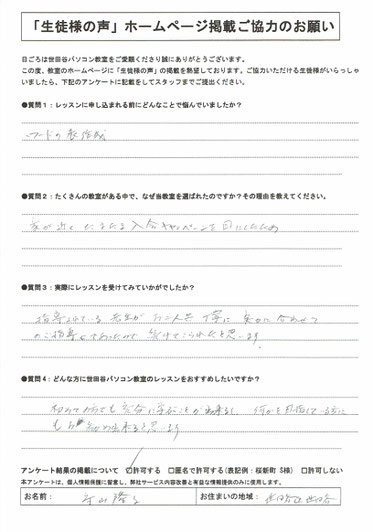 「生徒様の声」ホームページ掲載ご協力のお願い
日ごろは世田谷パソコン教室をご愛顧くださり誠にありがとうございます。
この度、教室のホームページに「生徒様の声」の掲載を熱望しております。ご協力いただける生徒様がいらっしゃ
いましたら、下記のアンケートに記載をしてスタッフまでご提出ください。
●質問１：レッスンに申し込まれる前にどんなことで悩んでいましたか？
ワードの表作成
●質問２：たくさんの教室がある中で、なぜ当教室を選ばれたのですか？その理由を教えてください。
家が近く たまたま入会キャンペーンを目にしたため
●質問３：実際にレッスンを受けてみていかがでしたか？
指導されている先生が お二人共 丁寧に
のご指導 受けてこられたと思います
●質問４：どんな方に世田谷パソコン教室のレッスンをおすすめしたいですか？
初めての方でも 充分に学ぶことが出来るし、何かを目指している方に
出来ると思います
アンケート結果の掲載について ☑許可する □匿名で許可する(表記例：桜新町 S様) □許可しない
本アンケートは、個人情報保護に留意し、弊社サービス内容改善と有益な情報提供のみに使用します。
お名前： お住まいの地域：